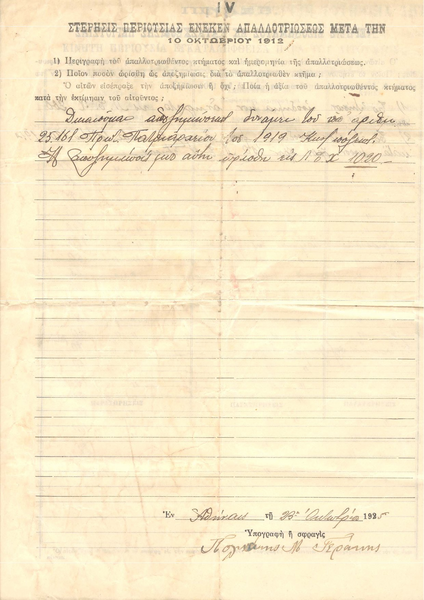 IV
ΣΤΕΡΗΣΙΣ ΠΕΡΙΟΥΣΙΑΣ ΕΝΕΚΕΝ ΑΠΑΛΛΟΤΡΙΩΣΕΩΣ ΜΕΤΑ ΤΗΝ
10 ΟΚΤΩΒΡΙΟΥ 1912
1) Περιγραφὴ τοῦ ἀπαλλοτριωθέντος κτήματος καὶ ἡμερομηνία τῆς ἀπαλλοτριώσεως.
2) Ποῖον ποσὸν ὡρίσθη ὡς ἀποζημίωσις διὰ τὸ ἀπαλλοτριωθὲν κτῆμα ;
Ὁ αἰτῶν εἰσέπραξε τὴν ἀποζημίωσιν ἢ ὄχι; Ποία ἡ ἀξία τοῦ ἀπαλλοτριωθέντος κτήματος
κατὰ τὴν ἐκτίμησιν τοῦ αἰτοῦντος ;
Δικαιοῦμαι ἀποζημιώσεως δυνάμει τοῦ ἀριθ.
25.161 1919
Ἡ ἀποζημίωσις αὕτη ὡρίσθη εἰς 1020
Ἐν Ἀθήναις τῇ 23 Ὀκτωβρίου 1925
Ὑπογραφὴ ἢ σφραγὶς
Μ